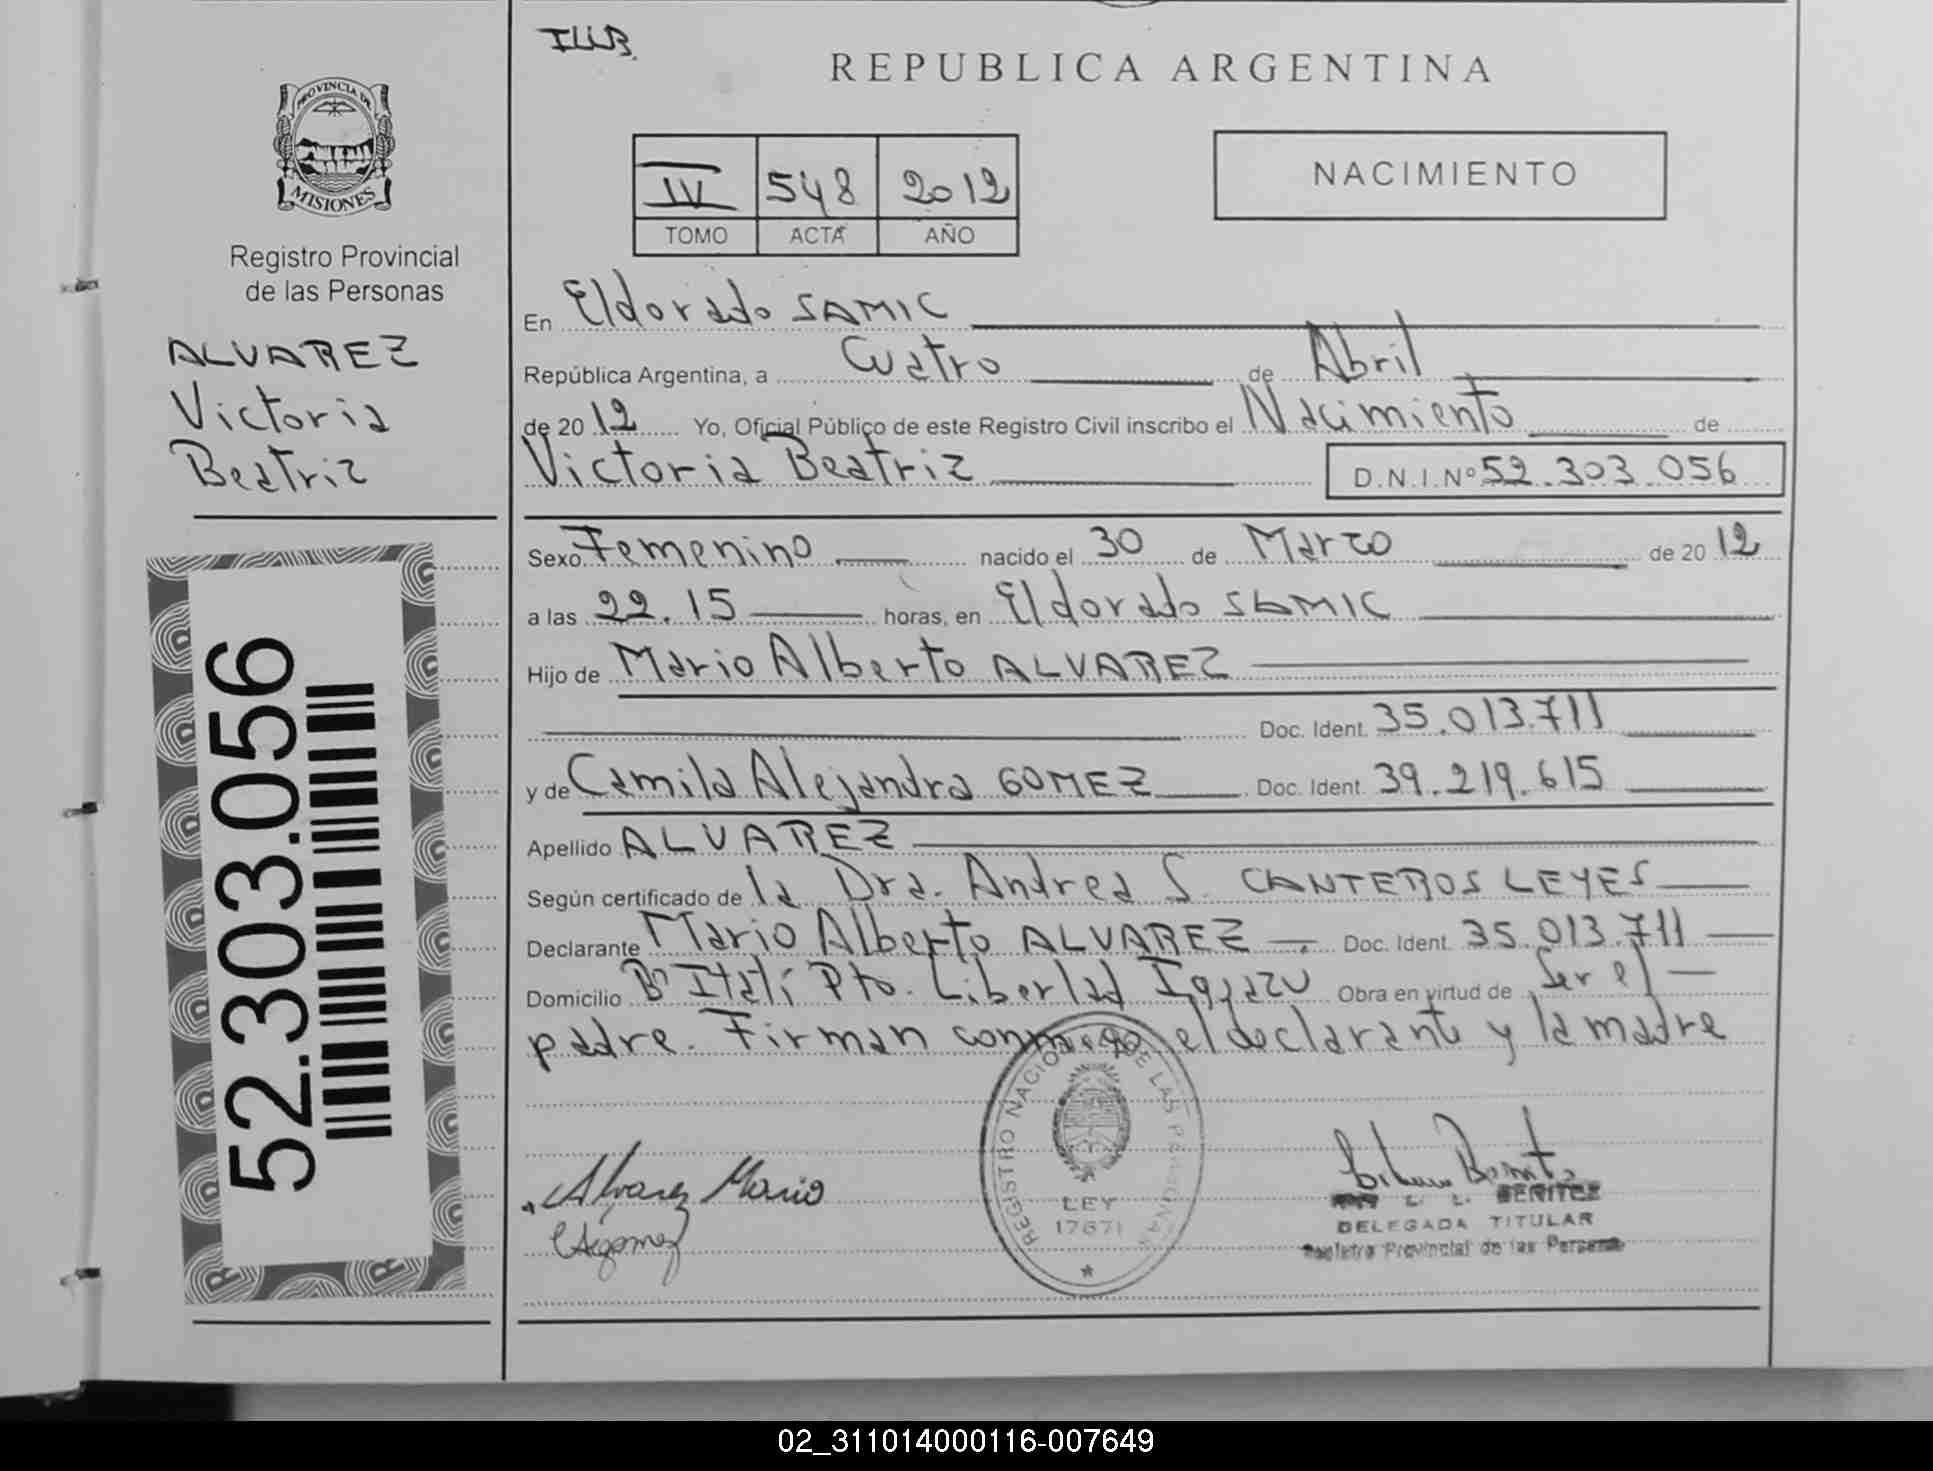 ILLB.
REPUBLICA ARGENTINA
PROVINCIA DE
MISIONES
Registro Provincial
de las Personas
ALVAREZ
Victoria
Beatriz
52.303.056
IV 548 2012
TOMO ACTA AÑO
NACIMIENTO
En Eldorado SAMIC
República Argentina, a Cuatro de Abril
de 2012 Yo, Oficial Público de este Registro Civil inscribo el Nacimiento de
Victoria Beatriz D.N.I.Nº 52.303.056
Sexo Femenino nacido el 30 de Marzo de 2012
a las 22.15 horas, en Eldorado SAMIC
Hijo de Mario Alberto ALVAREZ
Doc. Ident. 35.013.711
y de Camila Alejandra GOMEZ Doc. Ident. 39.219.615
Apellido ALVAREZ
Según certificado de la Dra. Andrea S. CANTEROS LEYES
Declarante Mario Alberto ALVAREZ. Doc. Ident. 35.013.711
Domicilio Bº Itatí Pto. Libertad Iguazú Obra en virtud de Ser el
padre. Firman conmigo el declarante y la madre
REGISTRO NACIONAL DE LAS PERSONAS
LEY
17671
Alvarez Mario
CAgomez
L. BENITEZ
DELEGADA TITULAR
Registro Provincial de las Personas
02_311014000116-007649